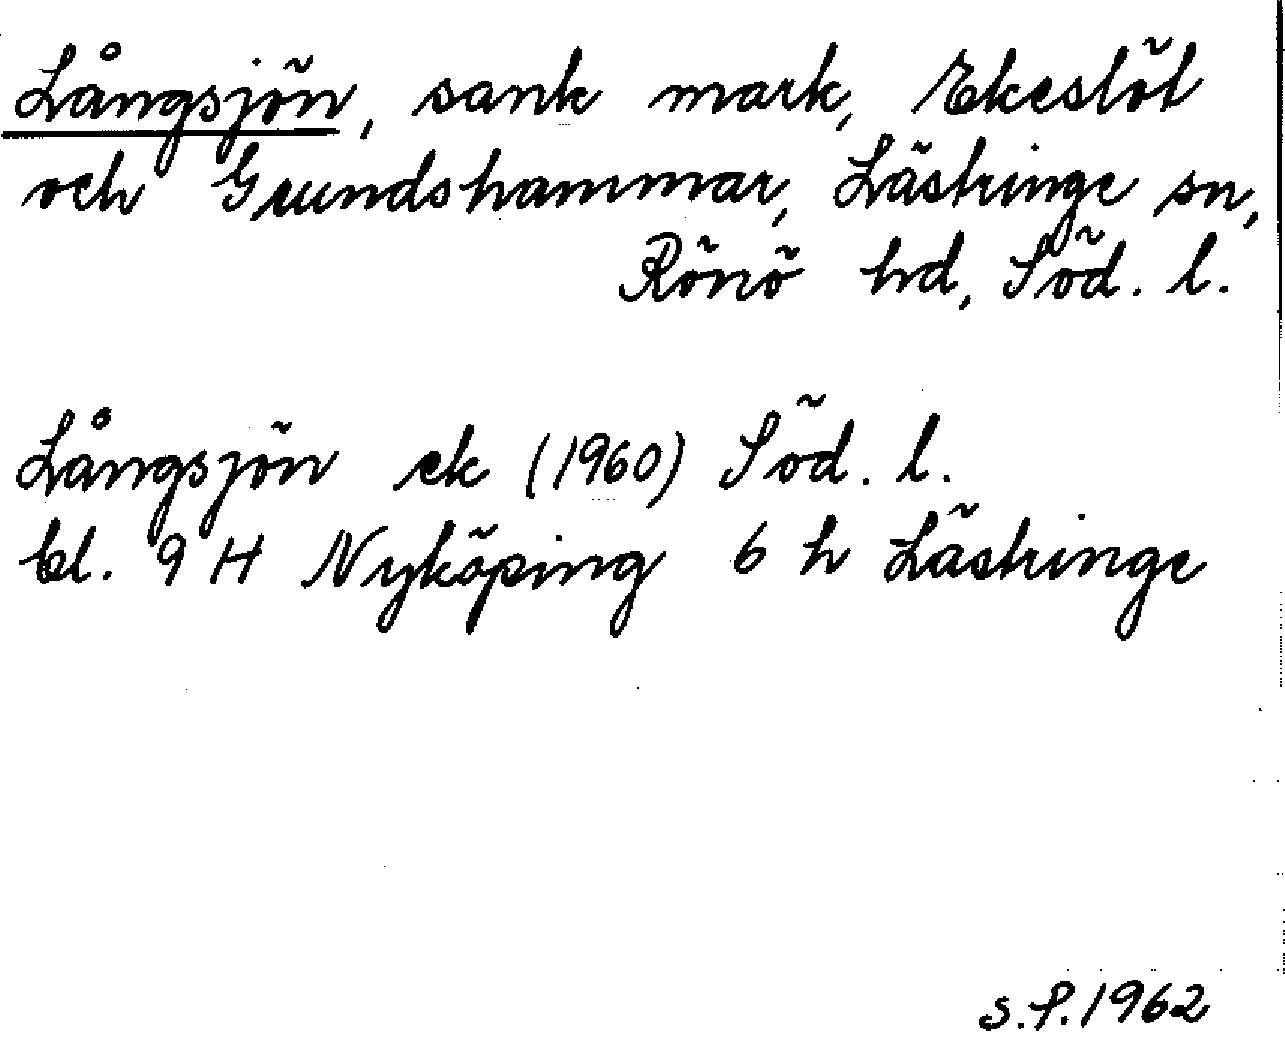 Långsjön, sank mark, Ekeslöt
och Grundshammar, Lästringe sn,
Rönö hd, Söd. l.
Långsjön ek (1960) Söd. l.
bl. 9 H Nyköping 6 h Lästringe
S.P. 1962